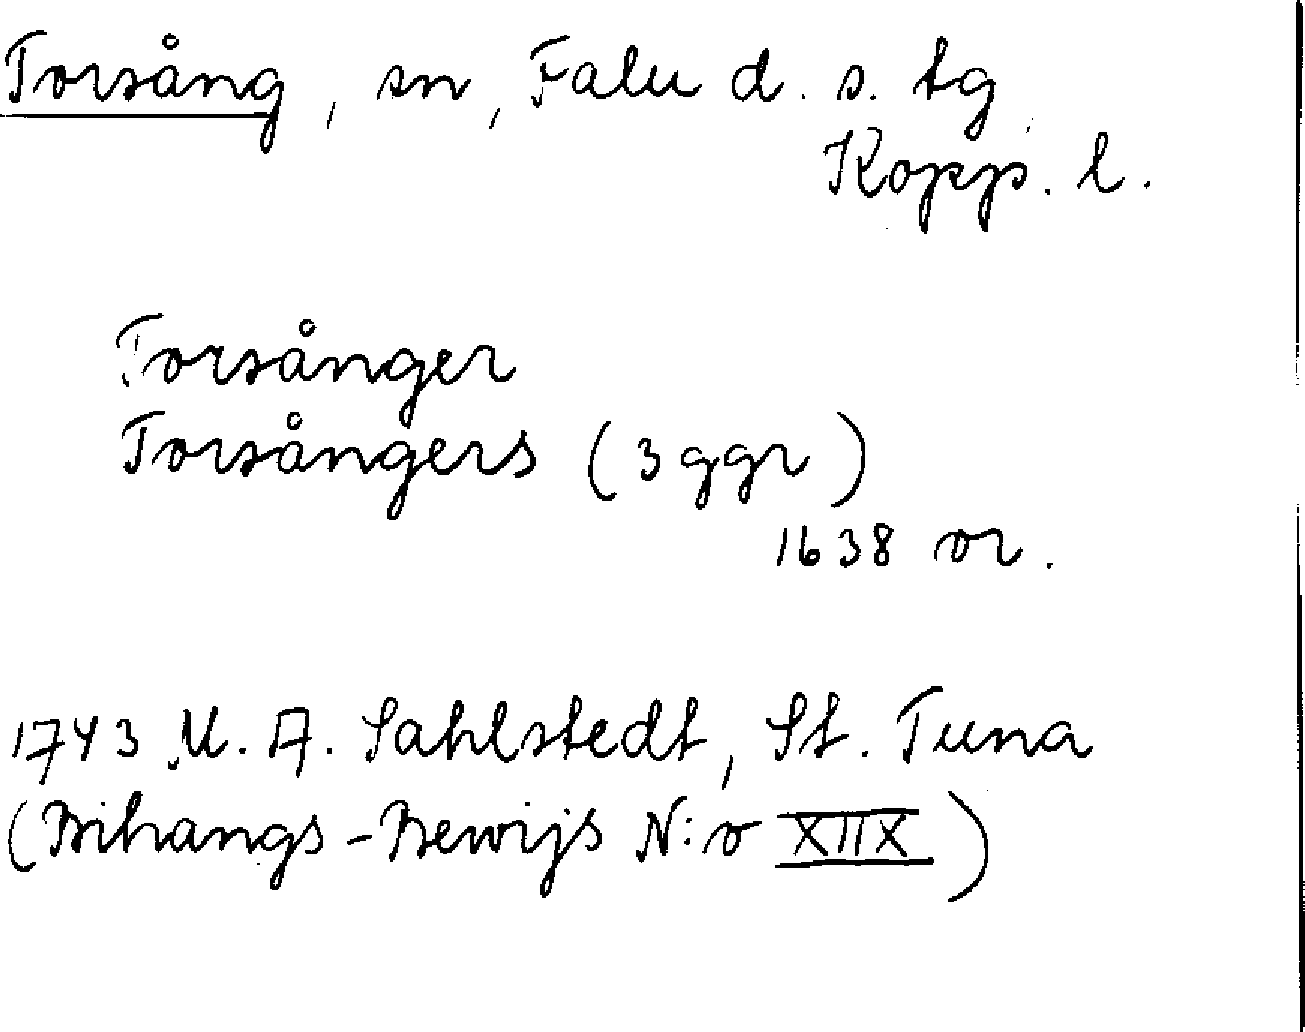 Torsång, sn, Falu d. s. tg
Kopp. l.
Torsånger
Torsångers (3 ggr)
1638 or.
1743 M. A. Sahlstedt, St. Tuna
(Bihangs-Bewijs N:o XIIX)